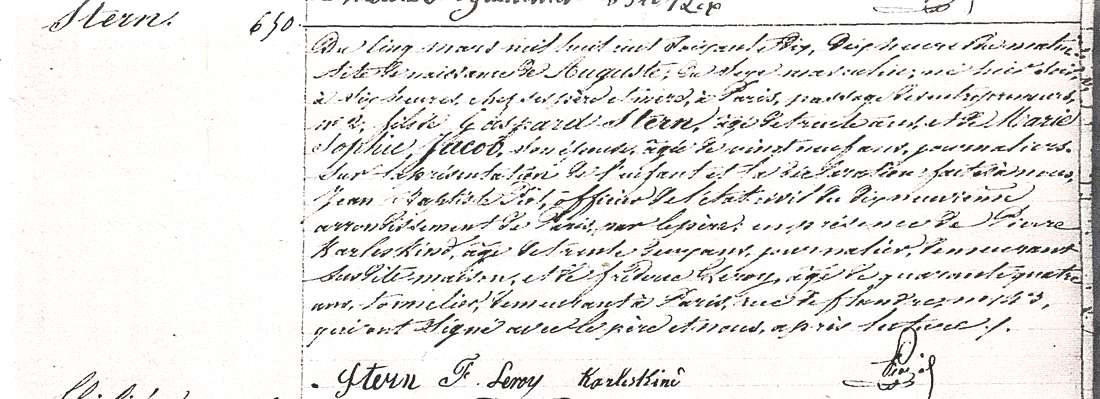 Stern. 650
Du cinq mars mil huit cent soixante dix, dix heures du matin
Acte de naissance de Auguste, du sexe masculin, né hier soir
à six heures, chez ses père et mère, à Paris, passage des entrepreneurs,
n° 2, fils de Gaspard Stern, âgé de trente ans, et de Marie
Sophie, Jacob, son épouse, âgée de vingt neuf ans, journaliers.
Sur la présentation de l'enfant et la déclaration faite à nous,
Jean Baptiste officier de l'état civil du dix neuvième
arrondissement de Paris, par le père, en présence de Pierre
Karleskind, âgé de trente deux ans, journalier, demeurant
susdite maison, et de Fréderic Leroy, âgé de quarante quatre
ans, tonnelier, demeurant à Paris, rue de Flandres n° 143,
qui ont signé avec le père et nous, après lecture ./.
Stern F. Leroy Karleskind